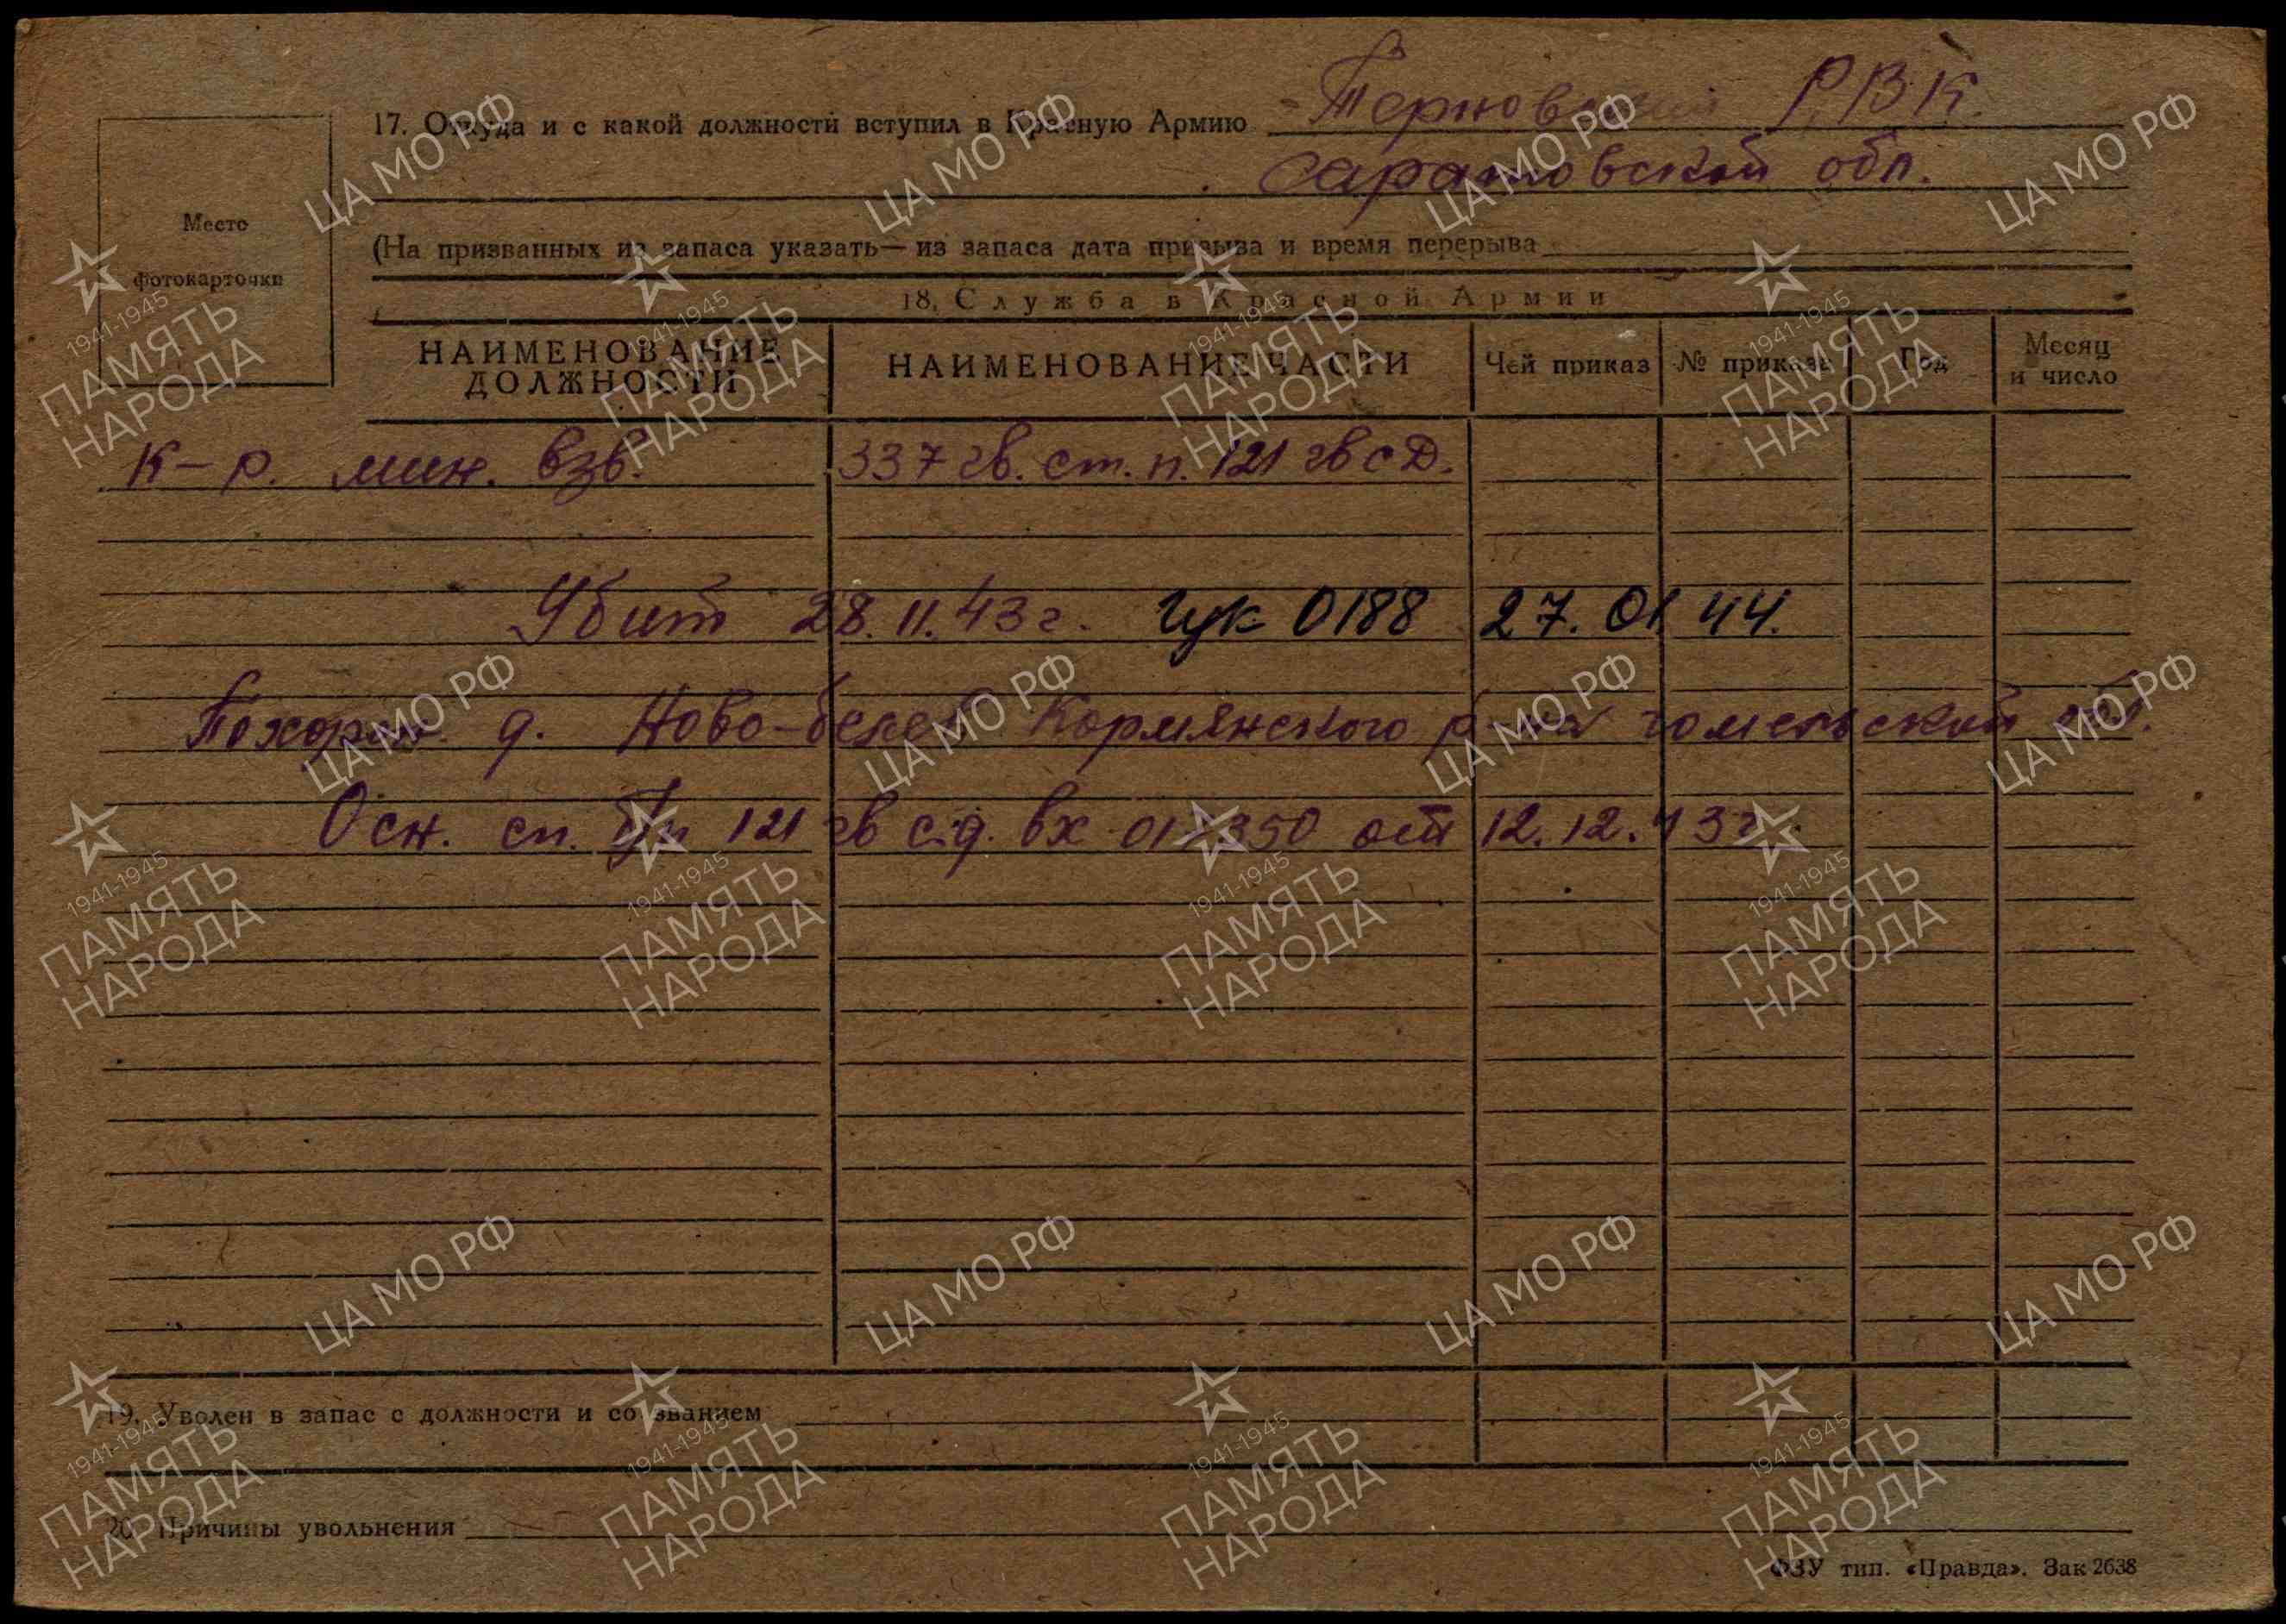 17. Откуда и с какой должности вступил в Красную Армию Терновский РВК.
Саратовской обл.
Место
фотокарточки
(На призванных из запаса указать— из запаса дата призыва и время перерыва
18. Служба в Красной Армии
НАИМЕНОВАНИЕ ДОЛЖНОСТИ НАИМЕНОВАНИЕ ЧАСТИ Чей приказ № приказа Год Месяц и число
К-р. мин. взв. 337 гв. ст. п. 121 гв с Д.
Убит 28.11.43 г. гук 0188 27.01 44.
Похорон д. Ново- Кормянского р-на гомельской обл.
Осн. сп. б/п 121 гв с.д. вх 01350 от 12.12.43г
19. Уволен в запас с должности и со званием
20. Причины увольнения
ФЗУ тип. «Правда». Зак 2638
ЦА МО РФ
1941-1945
ПАМЯТЬ
НАРОДА